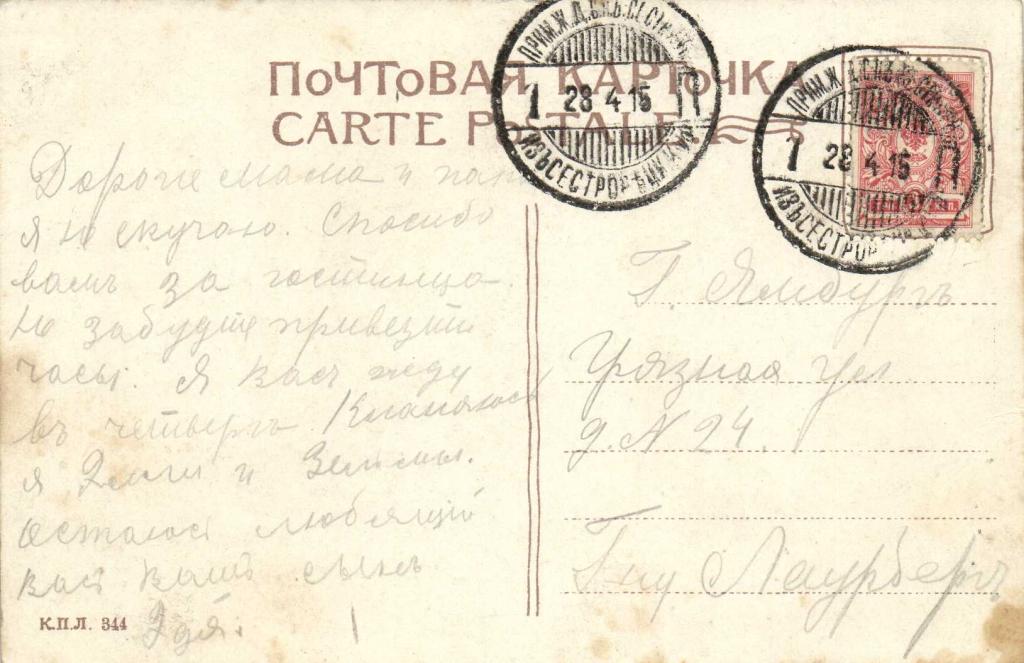 ПОЧТОВАЯ КАРТОЧКА
CARTE POSTALE
ПРИМ.Ж.Д.
1 28 4 15 П
ИЗЪСЕСТРОРѢЦКА
ПРИМ.Ж.Д.
1 28 4 15 П
ИЗЪСЕСТРОР
Дорогие мама и пап
я не скучаю. Спасибо
вамъ за гостинца.
Не забудте привезти
часы. Я васъ жду
въ четвергъ Кланяюсь
я и
остаюсь любящий
васъ вашъ сынъ
Эдя.
Г. Ямбургъ
Грязная ул
д. N 24.
Г-ну Лаурбергъ
К.П.Л. 344